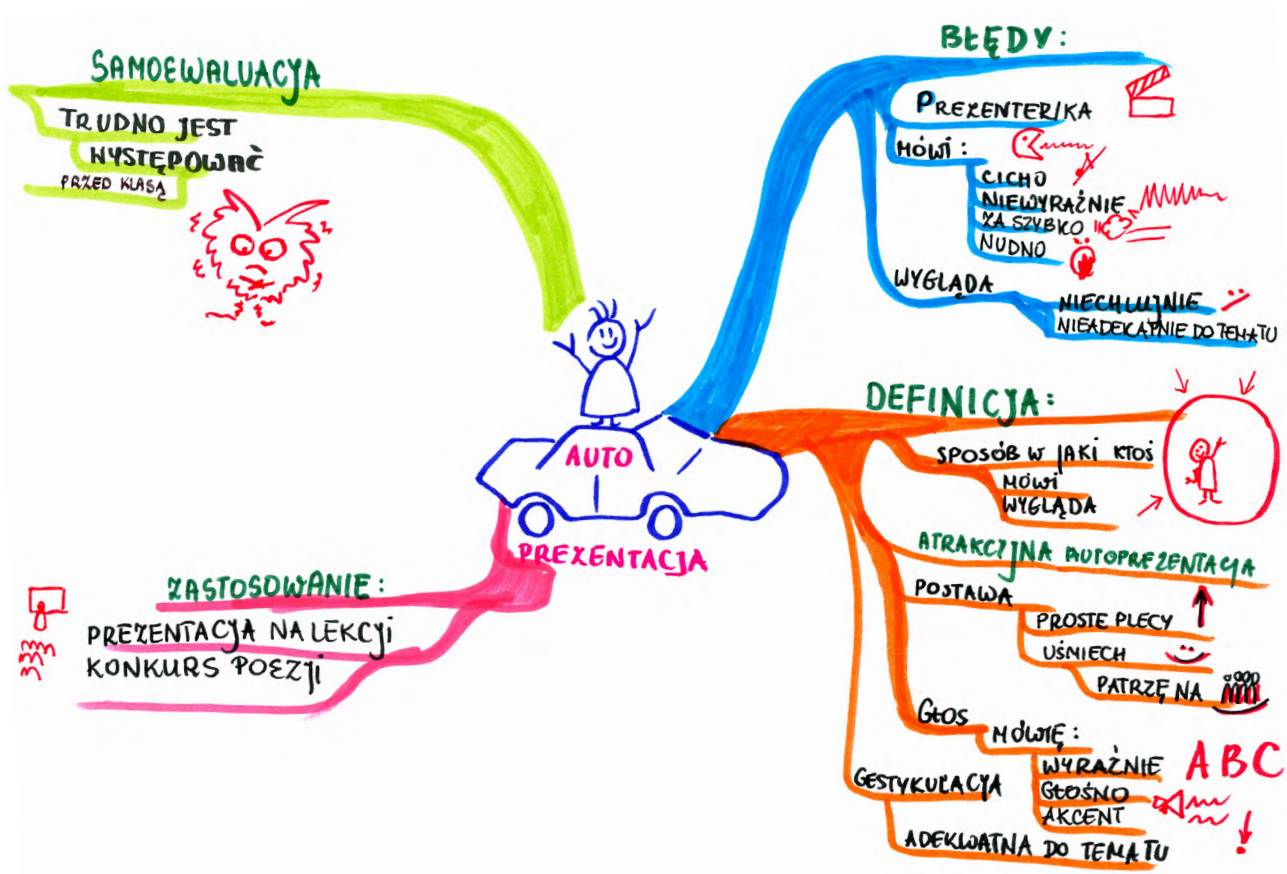 SAMOEWALUACJA
TRUDNO JEST
WYSTĘPOWAĆ
PRZED KLASĄ
BŁĘDY:
PREZENTERA/KA
MÓWI:
CICHO
NIEWYRAŹNIE
ZA SZYBKO
NUDNO
WYGLĄDA
NIECHLUJNIE
NIEADEKATNIE DO TEMATU
AUTO
PREZENTACJA
DEFINICJA:
SPOSÓB W JAKI KTOŚ
MÓWI
WYGLĄDA
ATRAKCYJNA AUTOPREZENTACJA
POSTAWA
PROSTE PLECY
UŚMIECH
PATRZĘ NA
GŁOS
MÓWIĘ:
WYRAŹNIE
ABC
GŁOŚNO
AKCENT
!
GESTYKULACJA
ADEKWATNA DO TEMATU
ZASTOSOWANIE:
PREZENTACJA NA LEKCJI
KONKURS POEZJI